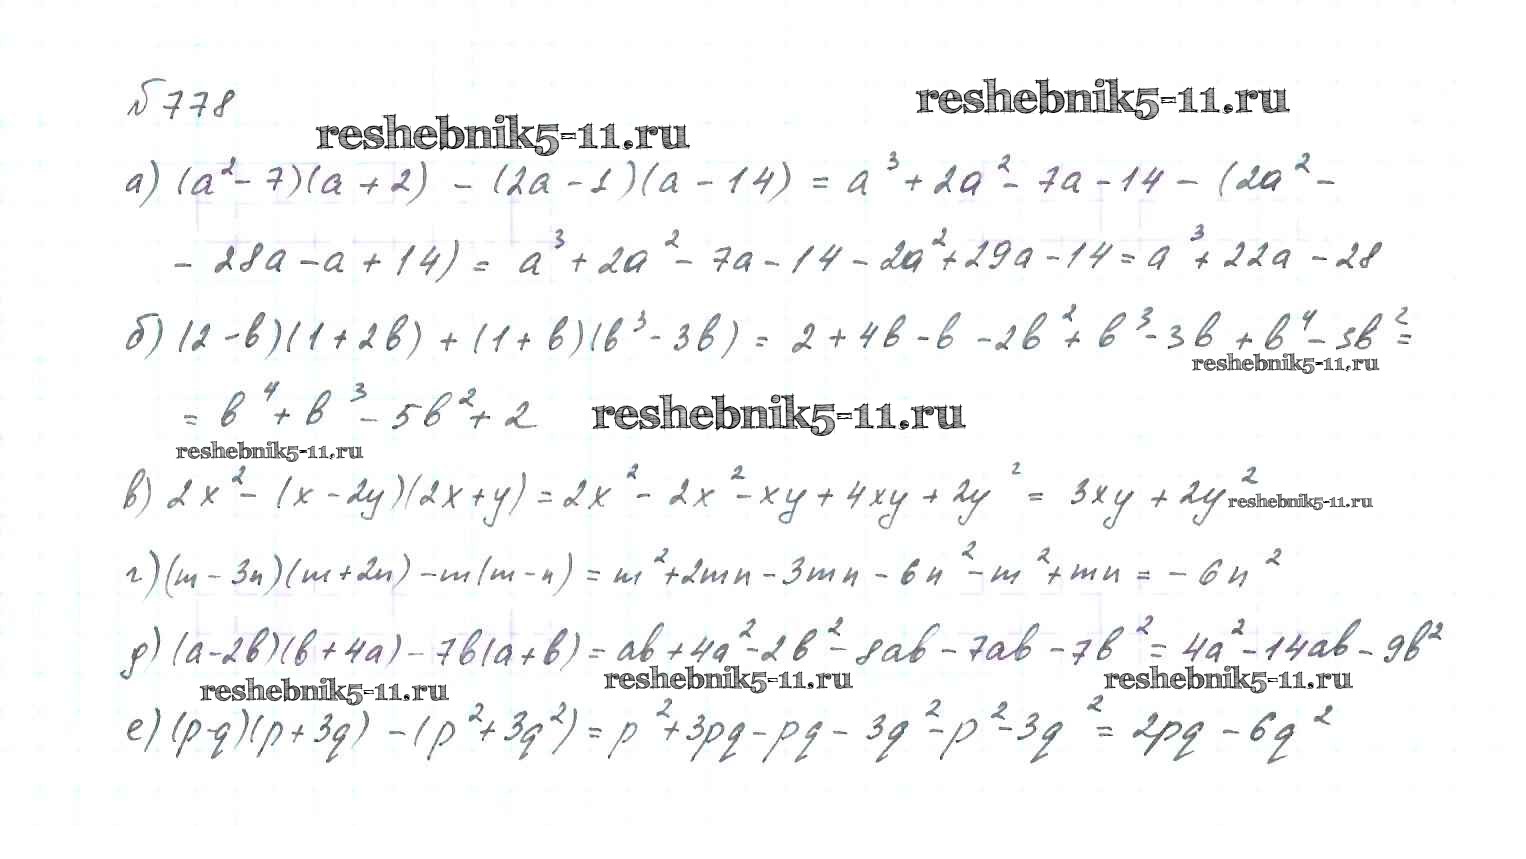 № 778
reshebnik5-11.ru
reshebnik5-11.ru
а) (a² - 7)(a + 2) - (2a - 1)(a - 14) = a³ + 2a² - 7a - 14 - (2a² -
- 28a - a + 14) = a³ + 2a² - 7a - 14 - 2a² + 29a - 14 = a³ + 22a - 28
б) (2 - b)(1 + 2b) + (1 + b)(b³ - 3b) = 2 + 4b - b - 2b² + b³ - 3b + b⁴ - 3b² =
reshebnik5-11.ru
= b⁴ + b³ - 5b² + 2
reshebnik5-11.ru
reshebnik5-11.ru
в) 2x² - (x - 2y)(2x + y) = 2x² - 2x² - xy + 4xy + 2y² = 3xy + 2y²
reshebnik5-11.ru
г) (m - 3n)(m + 2n) - m(m - n) = m² + 2mn - 3mn - 6n² - m² + mn = - 6n²
д) (a - 2b)(b + 4a) - 7b(a + b) = ab + 4a² - 2b² - 8ab - 7ab - 7b² = 4a² - 14ab - 9b²
reshebnik5-11.ru
reshebnik5-11.ru
reshebnik5-11.ru
е) (p - q)(p + 3q) - (p² + 3q²) = p² + 3pq - pq - 3q² - p² - 3q² = 2pq - 6q²